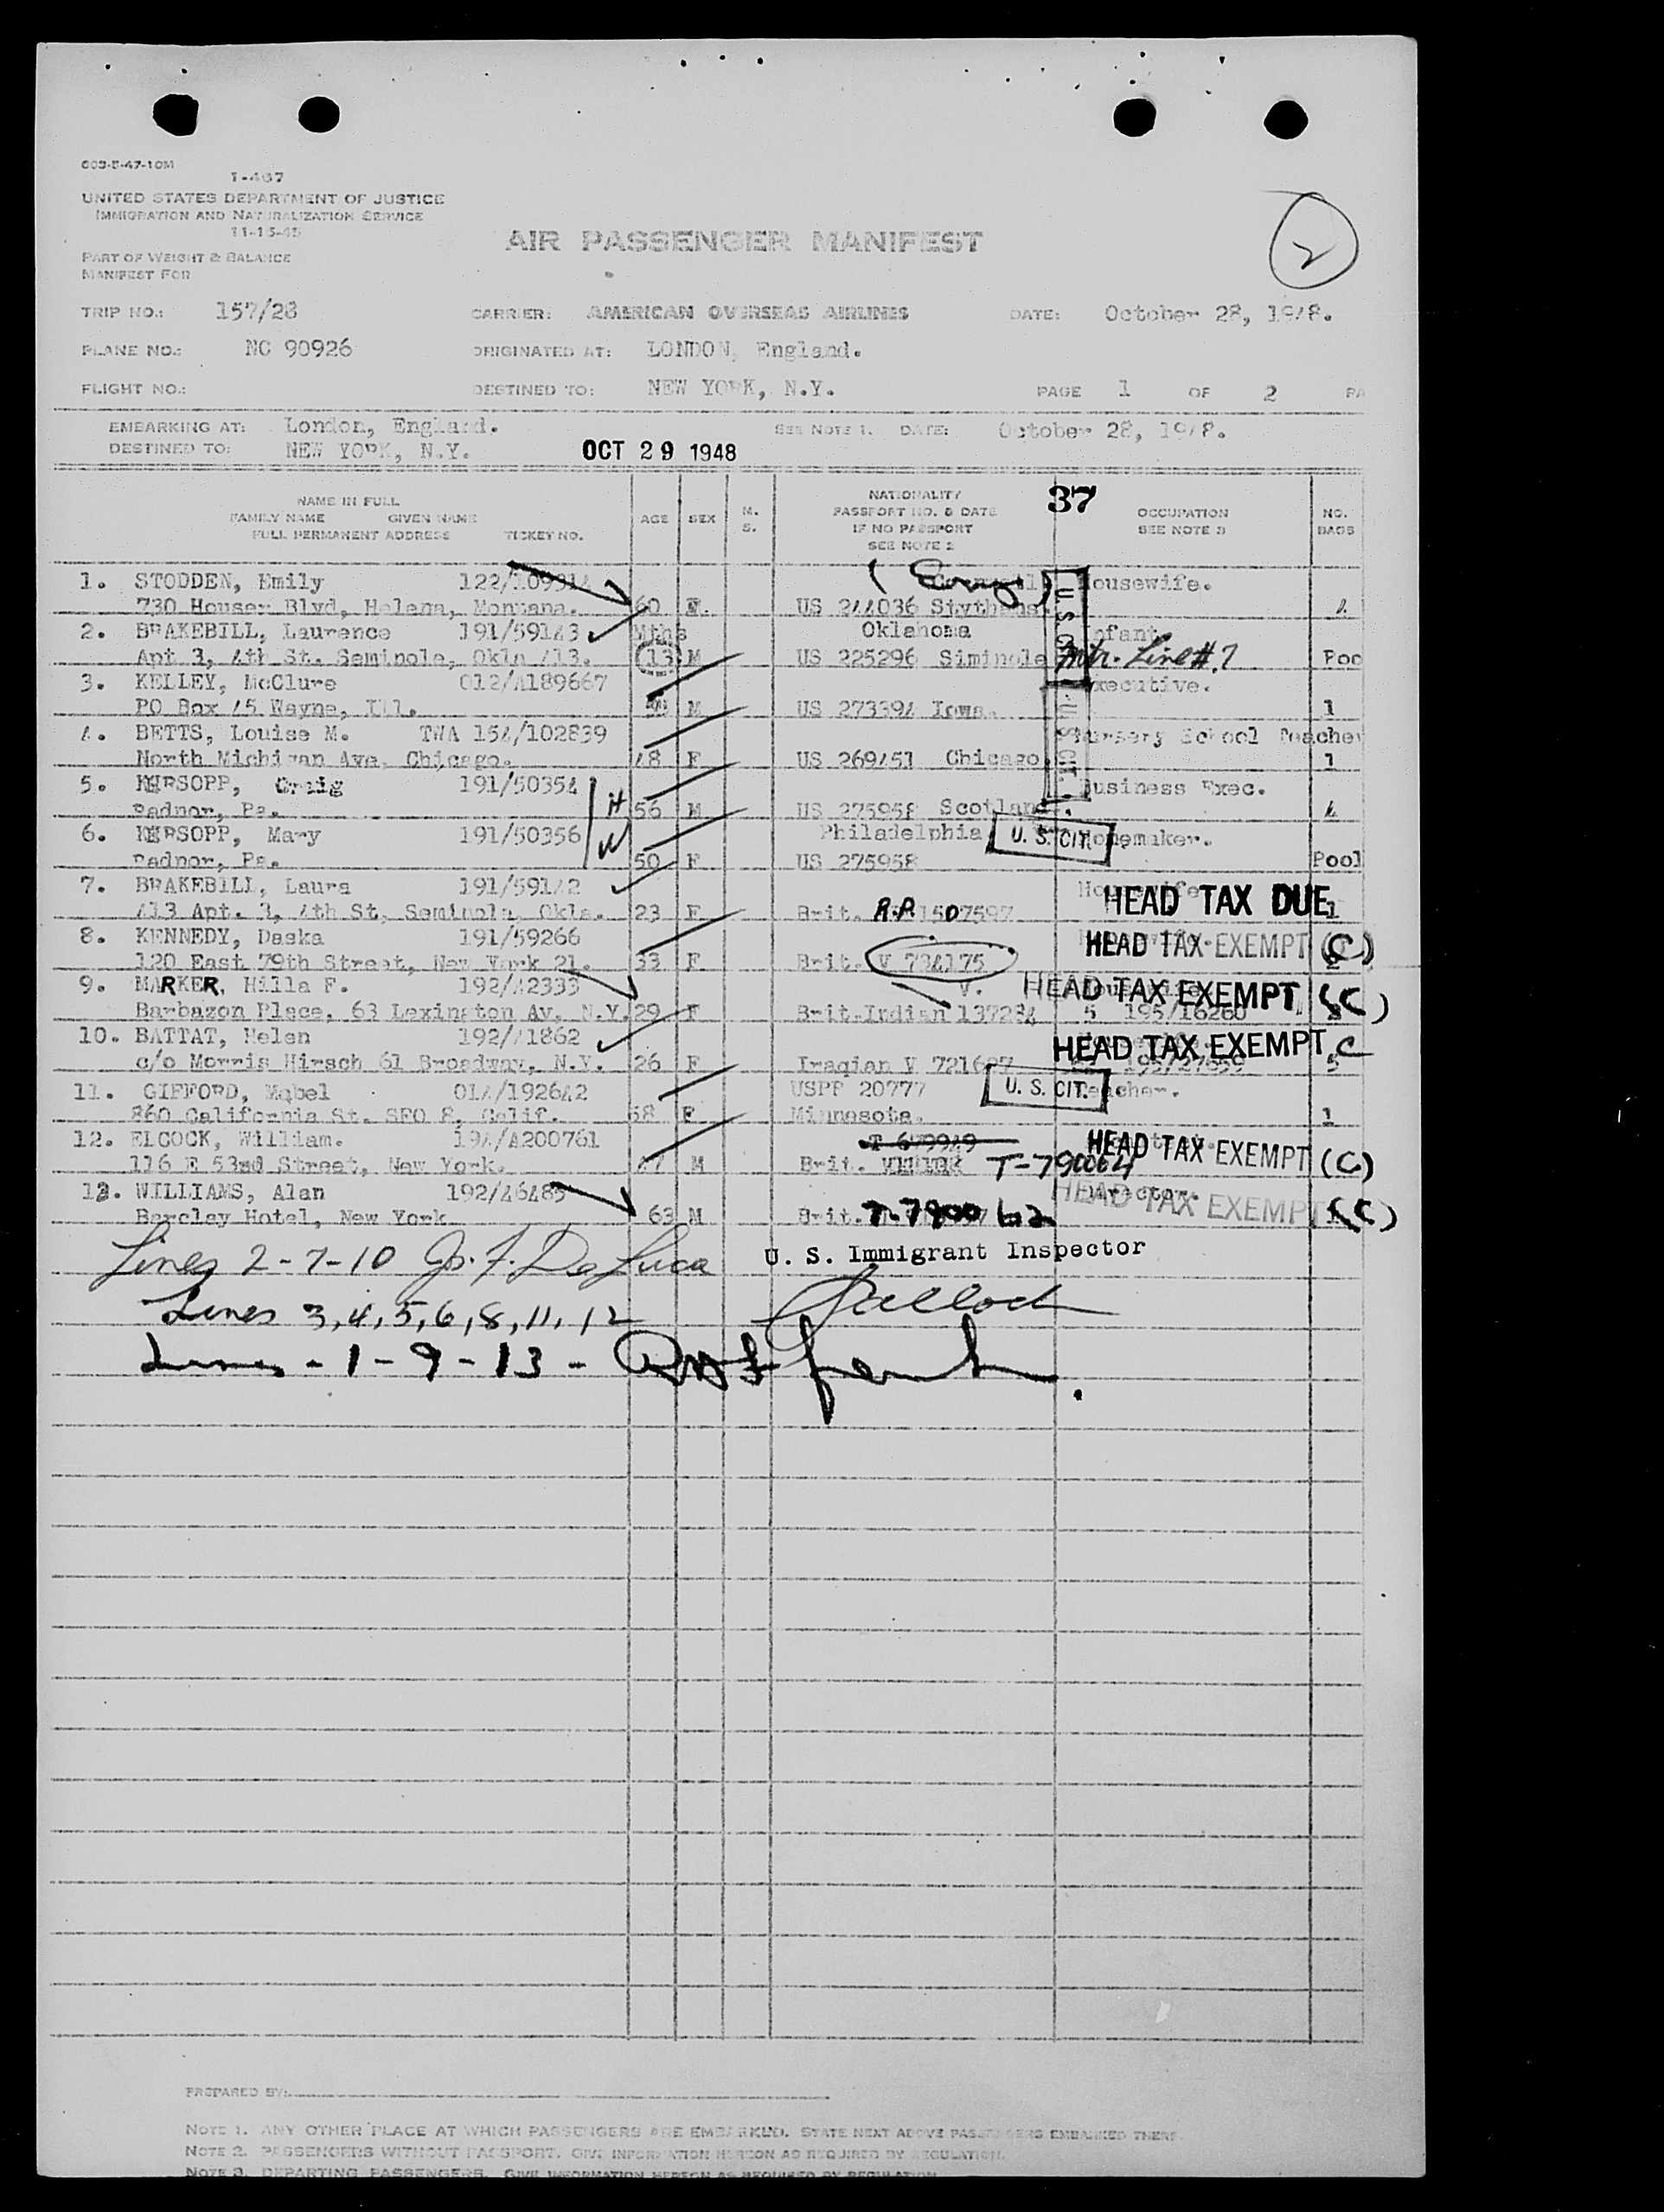 603-5-47-10M
I-467
UNITED STATES DEPARTMENT OF JUSTICE
IMMIGRATION AND NATURALIZATION SERVICE
11-15-45
AIR PASSENGER MANIFEST
2
PART OF WEIGHT & BALANCE
MANIFEST FOR
TRIP NO.: 157/28 CARRIER: AMERICAN OVERSEAS AIRLINES DATE: October 28, 1948.
PLANE NO.: NC 90926 ORIGINATED AT: LONDON, England.
FLIGHT NO.: DESTINED TO: NEW YORK, N.Y. PAGE 1 OF 2 PA
EMBARKING AT: London, England. SEE NOTE 1. DATE: October 28, 1948.
DESTINED TO: NEW YORK, N.Y. OCT 29 1948
NAME IN FULL
FAMILY NAME GIVEN NAME
FULL PERMANENT ADDRESS TICKET NO. AGE SEX M. S. NATIONALITY PASSPORT NO. & DATE IF NO PASSPORT SEE NOTE 2 37 OCCUPATION SEE NOTE 3 NO. BAGS
1. STODDEN, Emily 122/109314 Housewife.
730 Houser Blvd, Helena, Montana. 60 F. US 244036 U.S. CIT.
2. BRAKEBILL, Laurence 191/59143 Mths Oklahoma Infant
Apt 3, 4th St. Seminole, Okla 413. 13 M US 225296 Siminole Mtr. Line #7 Poo
3. KELLEY, McClure 012/A189667 Executive.
PO Box 45 Wayne, Ill. M US 273394 Iowa. 1
4. BETTS, Louise M. TWA 154/102839 U.S. CIT. Nursery School Teacher
North Michigan Ave. Chicago. 48 F US 269451 Chicago. 1
5. KERSOPP, Craig 191/50354 Business Exec.
Radnor, Pa. H 56 M US 275958 Scotland. 4
6. KERSOPP, Mary 191/50356 Philadelphia U. S. CIT. Homemaker.
Radnor, Pa. W 50 F US 275958 Pool
7. BRAKEBILL, Laura 191/59142 Housewife HEAD TAX DUE
413 Apt. 3, 4th St, Seminole, Okla. 23 F Brit. R.P. 1507597 1
8. KENNEDY, Daska 191/59266 HEAD TAX EXEMPT (C)
120 East 79th Street, New York 21. 33 F Brit. V 734175
9. MARKER, Hilla F. 192/42333 V. HEAD TAX EXEMPT (C)
Barbazon Place, 63 Lexington Av. N.Y. 29 F Brit.Indian 137284 5 195/16260
10. BATTAT, Helen 192/41862 HEAD TAX EXEMPT C
c/o Morris Hirsch 61 Broadway, N.Y. 26 F Iraqian V 721697 5
11. GIFFORD, Mabel 014/192642 USPP 20777 U. S. CIT. Teacher.
860 California St. SFO 8, Calif. 58 F Minnesota. 1
12. ELCOCK, William. 194/A200761 T 679949 HEAD TAX EXEMPT (C)
116 E 53rd Street, New York. 47 M Brit. T-790064
13. WILLIAMS, Alan 192/46485 Director. HEAD TAX EXEMPT (C)
Barclay Hotel, New York 63 M Brit. T-790062
Lines 2-7-10 Jos. F. De Luca U. S. Immigrant Inspector
Lines 3,4,5,6,8,11,12
Lines - 1 - 9 - 13 -
PREPARED BY:
NOTE 1. ANY OTHER PLACE AT WHICH PASSENGERS ARE EMBARKED. STATE NEXT ABOVE PASSENGERS EMBARKED THERE.
NOTE 2. PASSENGERS WITHOUT PASSPORT. GIVE INFORMATION HEREON AS REQUIRED BY REGULATION.
NOTE 3. DEPARTING PASSENGERS. GIVE INFORMATION HEREON AS REQUIRED BY REGULATION